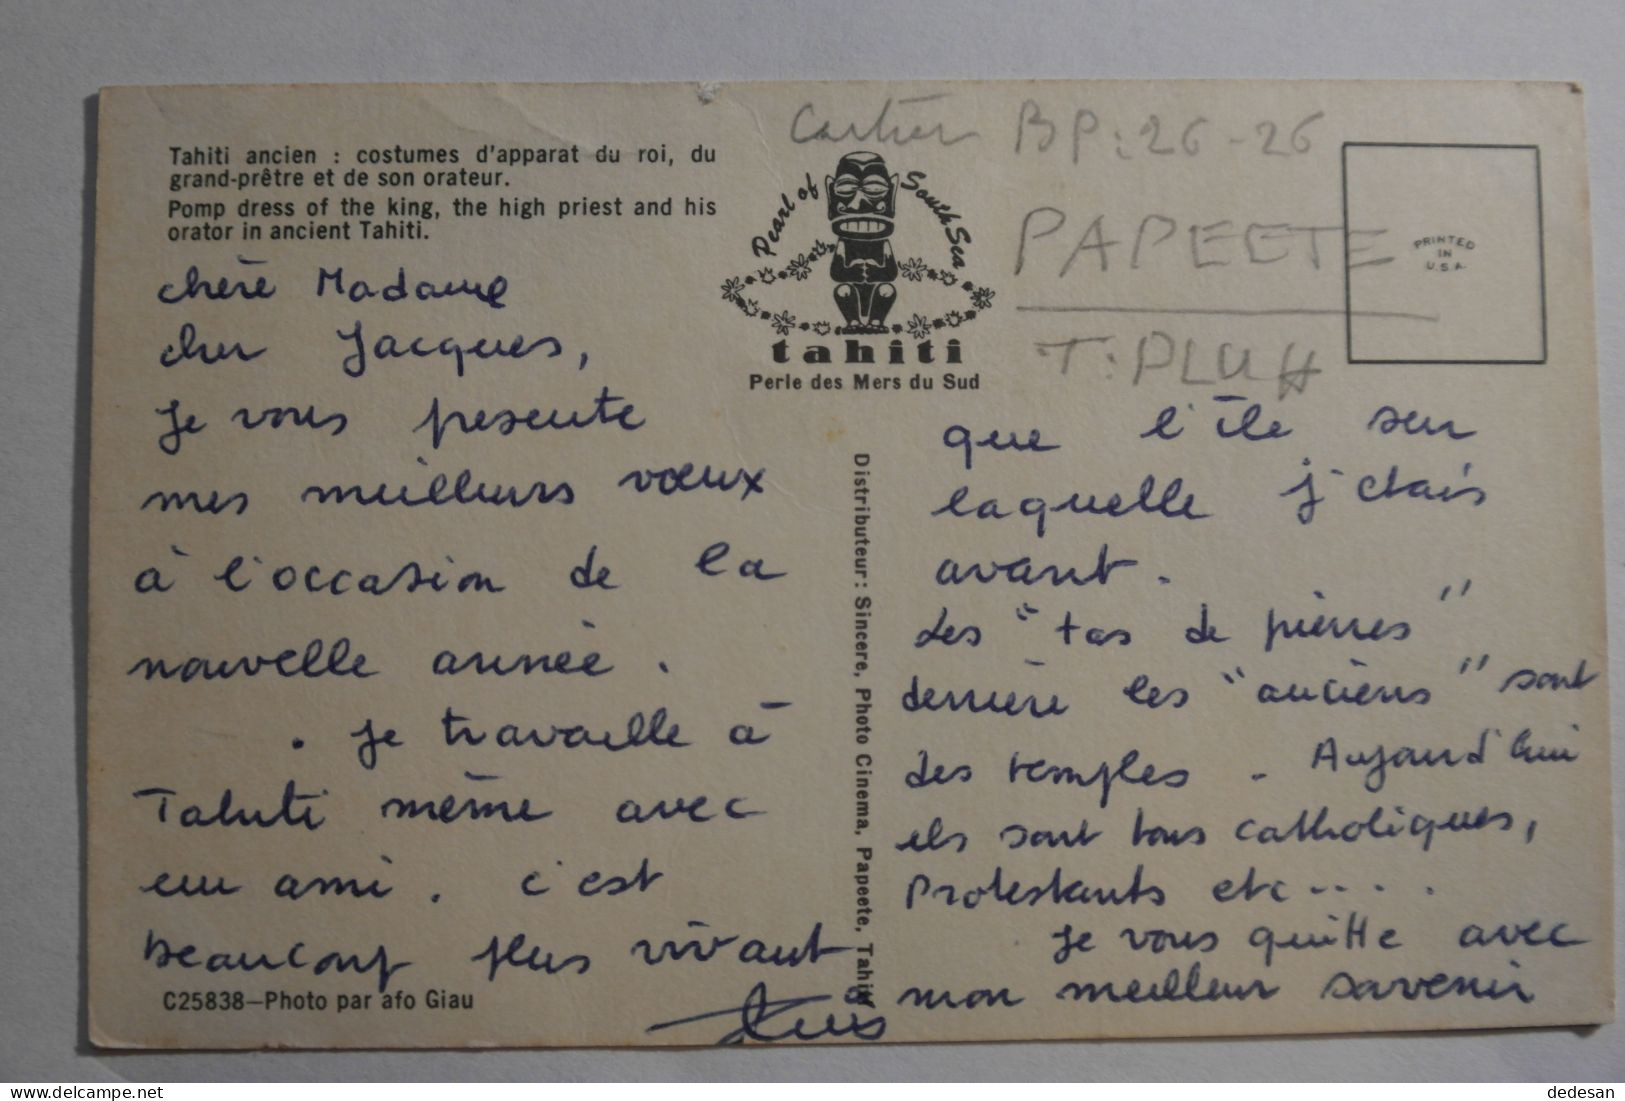 Tahiti ancien : costumes d'apparat du roi, du
grand-prêtre et de son orateur.
Pomp dress of the king, the high priest and his
orator in ancient Tahiti.
Pearl of South Sea
tahiti
Perle des Mers du Sud
BP: 26-26
PAPEETE
PRINTED
IN
U.S.A.
chère Madame
cher Jacques,
Je vous presente
mes meilleurs vœux
à l'occasion de la
nouvelle année.
. Je travaille à
Tahiti même avec
un ami. C'est
beaucoup plus vivant
C25838—Photo par afo Giau
Distributeur: Sincere, Photo Cinema, Papeete, Tahiti
que l'île sur
laquelle j'étais
avant.
Les "tas de pierres"
derrière les "anciens" sont
des temples. Aujourd'hui
ils sont tous catholiques,
Protestants etc....
Je vous quitte avec
mon meilleur souvenir
dedesan